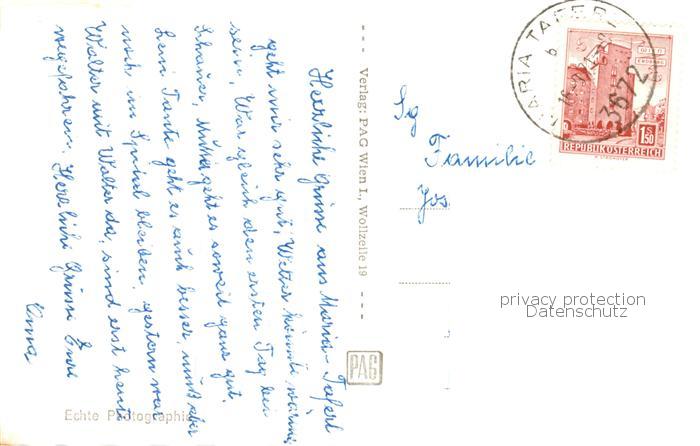 Herzliche Grüsse aus Maria-Taferl
geht mir sehr gut, Wetter könnte wärmer
sein, War gleich den ersten Tag bei
Schauer, Mutter geht es soweit ganz gut.
Leni Tante geht es auch besser, muß aber
noch im Spital bleiben, gestern war
Walter mit Walter da, sind erst heute
weggefahren. Herzliche Grüsse Eure
Oma
Echte Photographie
Verlag: PAG Wien I., Wollzeile 19
PAG
Sg
Familie
Jos
MARIA TAFERL
3672
1.50
REPUBLIK ÖSTERREICH
privacy protection
Datenschutz